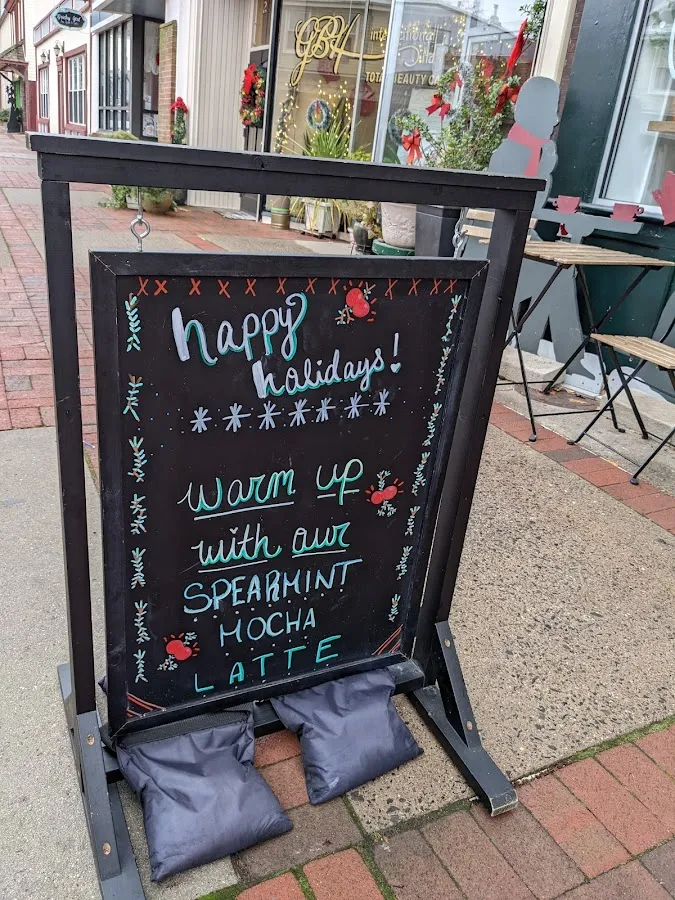 GBH international
TOTAL BEAUTY
happy
holidays!
warm up
with our
SPEARMINT
MOCHA
LATTE